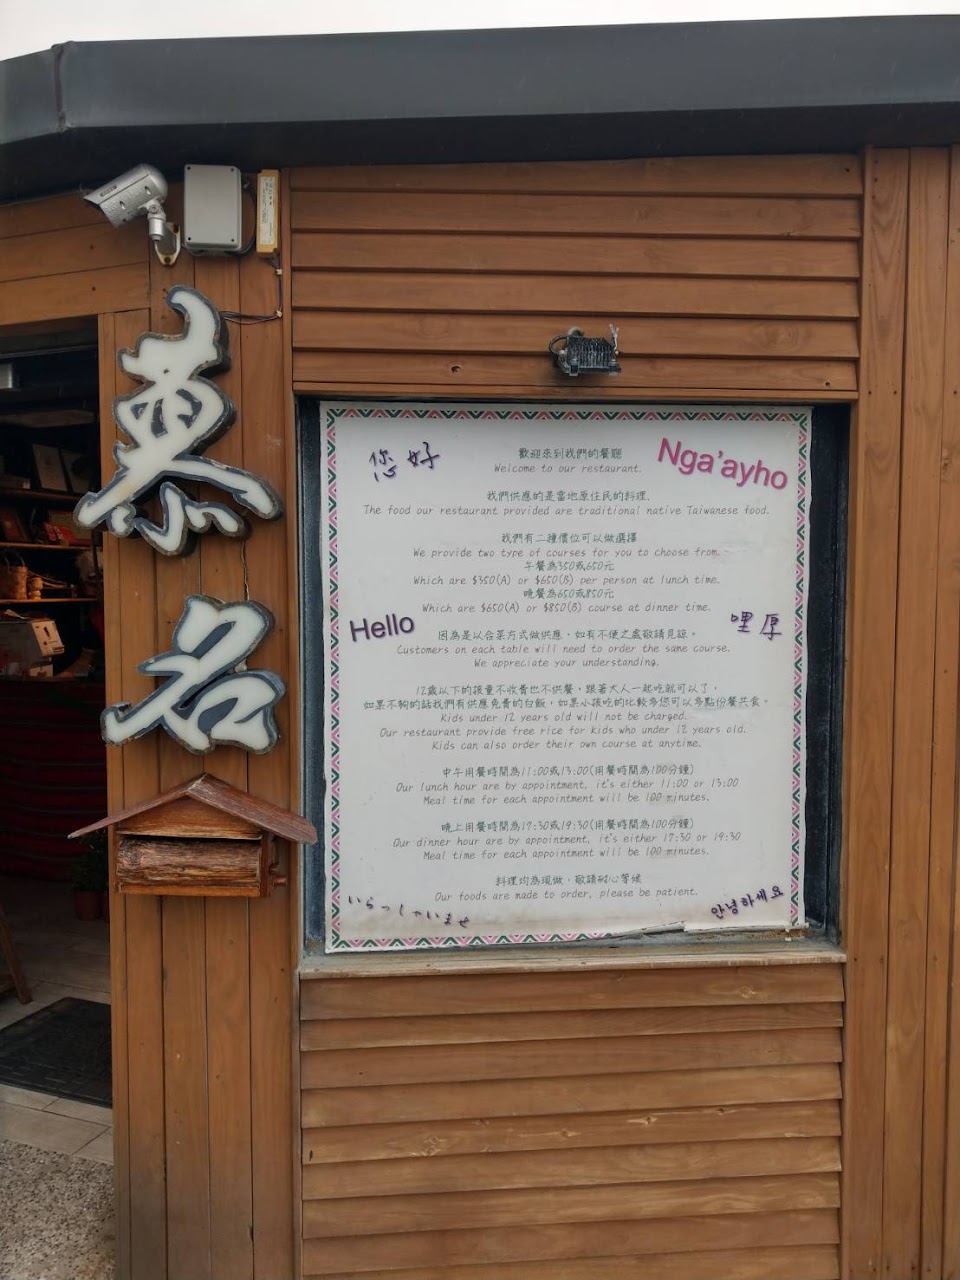 慕名
您好
Nga'ayho
歡迎來到我們的餐廳
Welcome to our restaurant.
我們供應的是當地原住民的料理.
The food our restaurant provided are traditional native Taiwanese food.
我們有二種價位可以做選擇
We provide two type of courses for you to choose from.
午餐為350或650元
Which are $350(A) or $650(B) per person at lunch time.
晚餐為650或850元
Which are $650(A) or $850(B) course at dinner time.
Hello
哩厚
因為是以合菜方式做供應，如有不便之處敬請見諒。
Customers on each table will need to order the same course.
We appreciate your understanding.
12歲以下的孩童不收費也不供餐，跟著大人一起吃就可以了，
如果不夠的話我們有供應免費的白飯，如果小孩吃的比較多您可以多點份餐共食。
Kids under 12 years old will not be charged.
Our restaurant provide free rice for kids who under 12 years old.
Kids can also order their own course at anytime.
中午用餐時間為11:00或13:00(用餐時間為100分鐘)
Our lunch hour are by appointment, it's either 11:00 or 13:00
Meal time for each appointment will be 100 minutes.
晚上用餐時間為17:30或19:30(用餐時間為100分鐘)
Our dinner hour are by appointment, it's either 17:30 or 19:30
Meal time for each appointment will be 100 minutes.
料理均為現做，敬請耐心等候
Our foods are made to order, please be patient.
いらっしゃいませ
안녕하세요